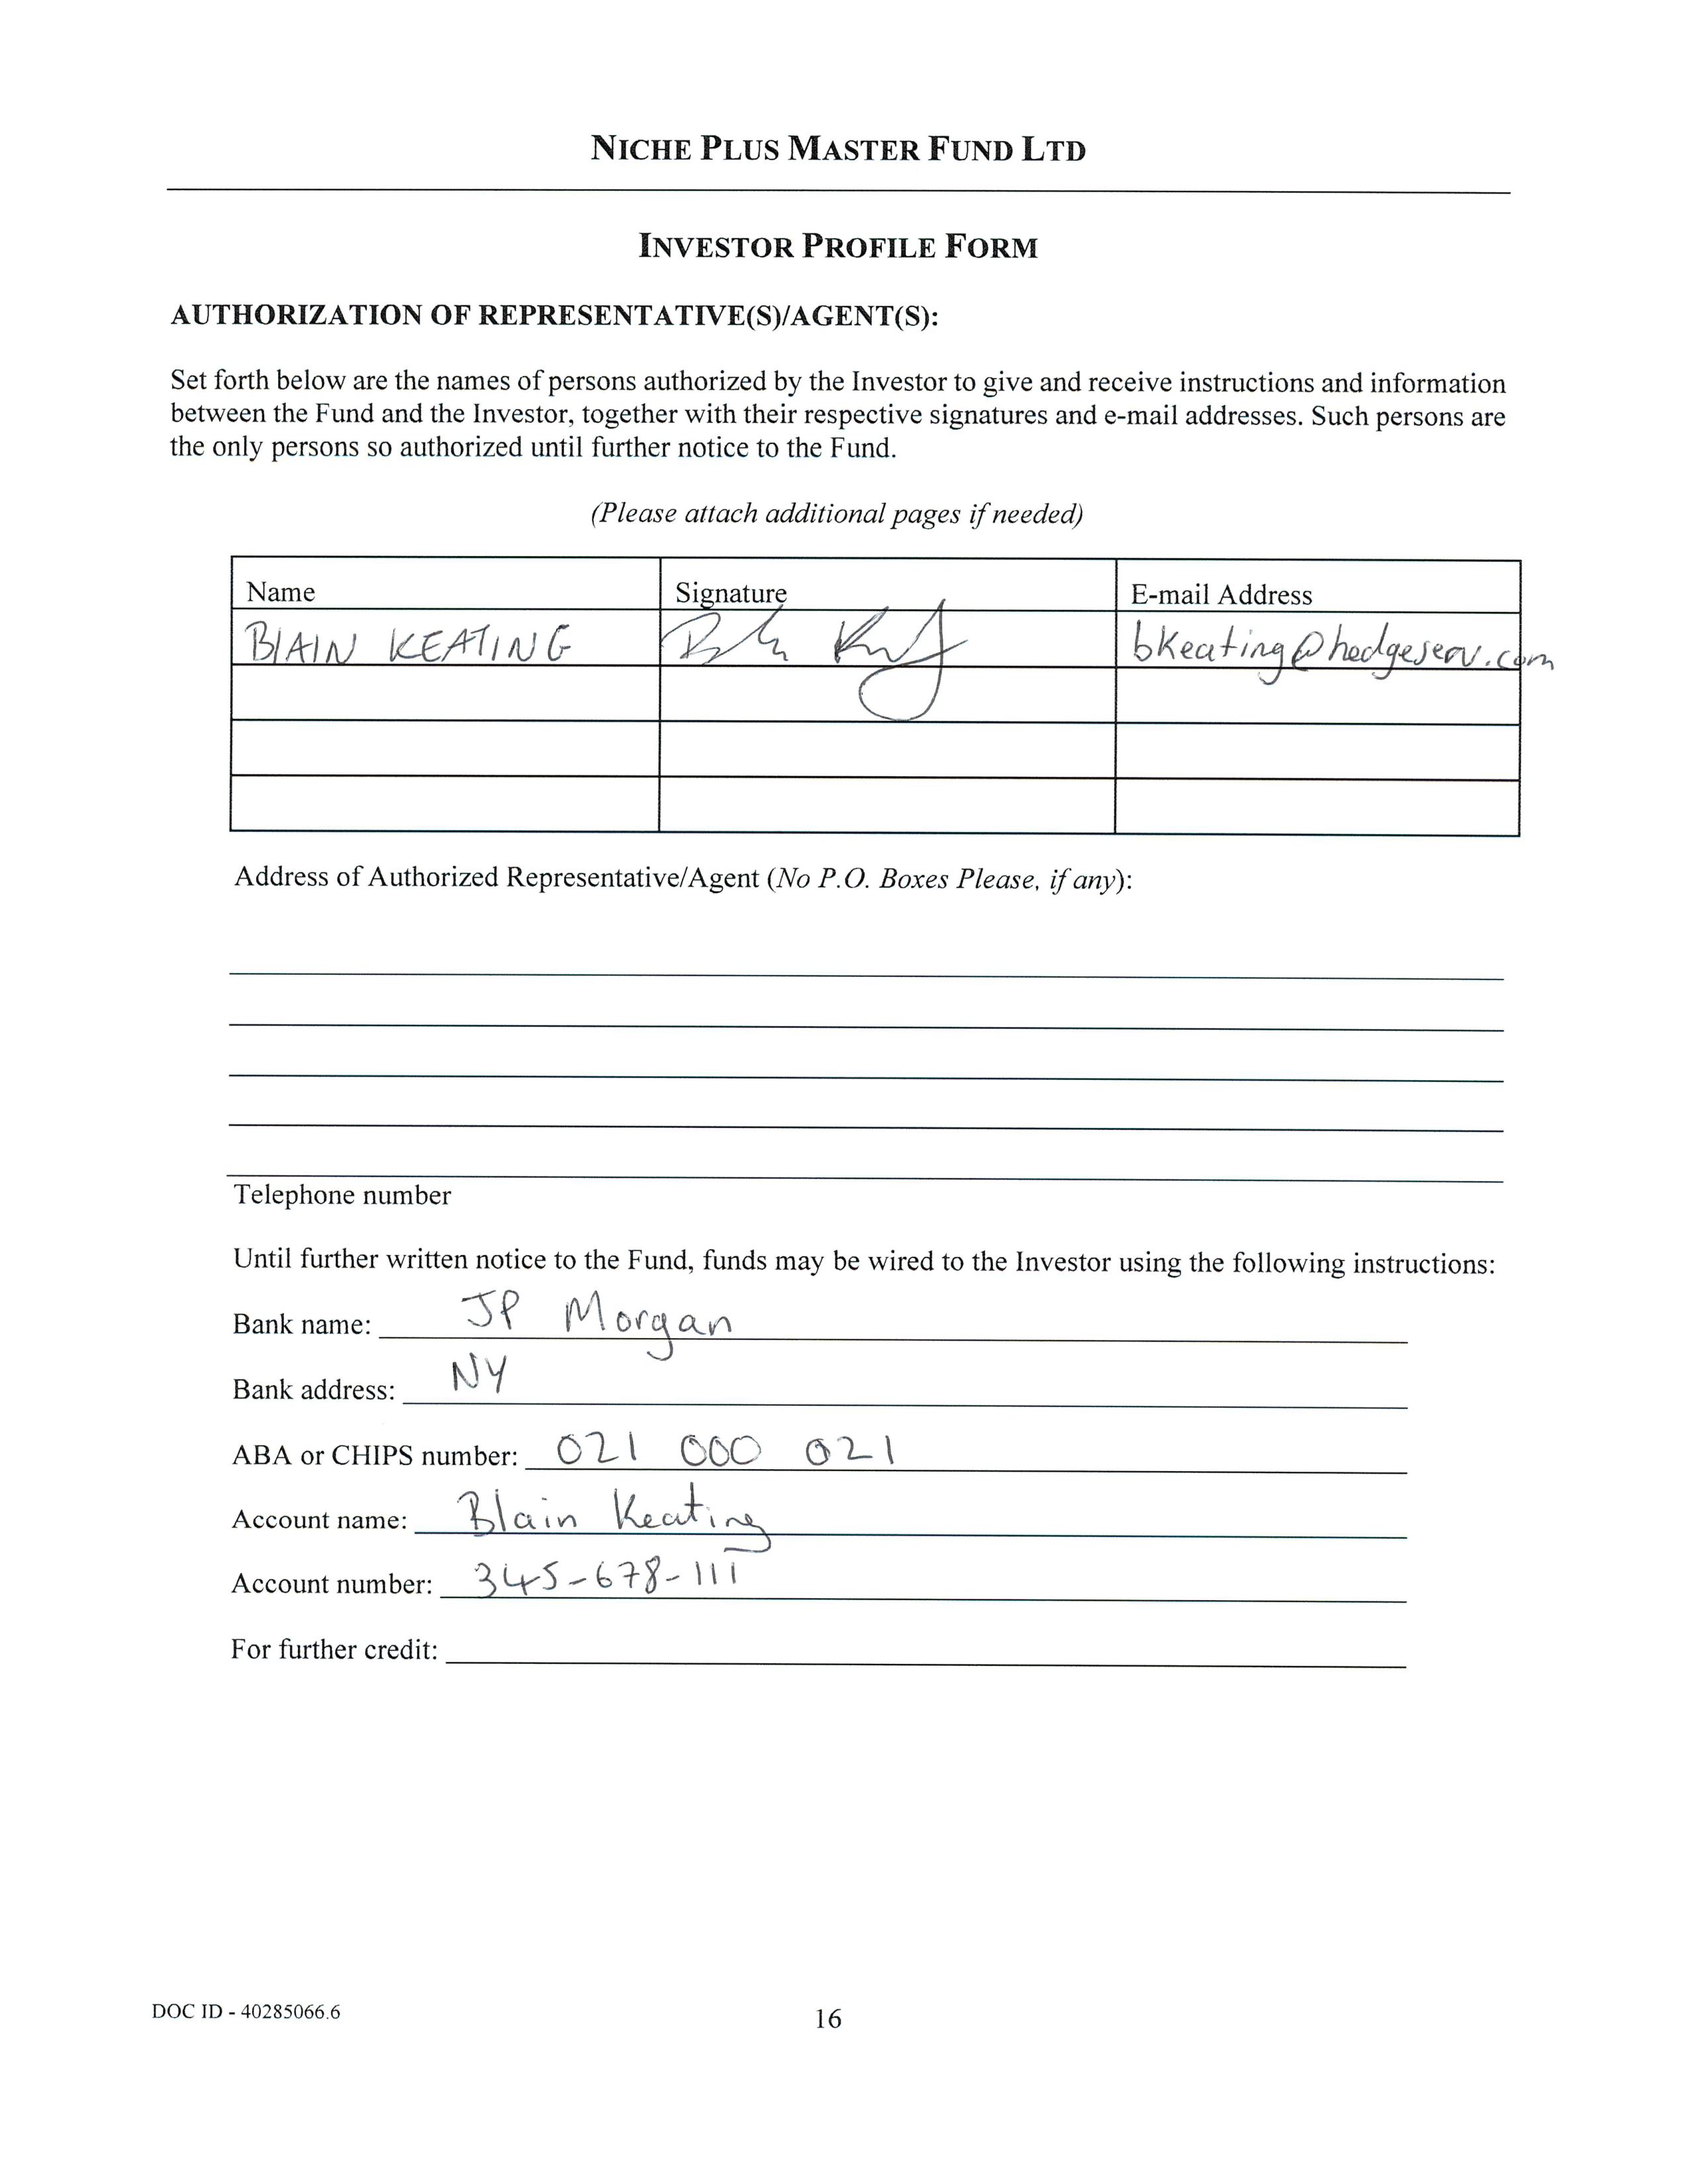 NICHE PLUS MASTER FUND LTD
INVESTOR PROFILE FORM
AUTHORIZATION OF REPRESENTATIVE(S)/AGENT(S):
Set forth below are the names of persons authorized by the Investor to give and receive instructions and information
between the Fund and the Investor, together with their respective signatures and e-mail addresses. Such persons are
the only persons so authorized until further notice to the Fund.
(Please attach additional pages if needed)
Name Signature E-mail Address
BlAIN KEATING bKeating@hedgeserv.com
Address of Authorized Representative/Agent (No P.O. Boxes Please, if any):
Telephone number
Until further written notice to the Fund, funds may be wired to the Investor using the following instructions:
Bank name: JP Morgan
Bank address: NY
ABA or CHIPS number: 021 000 021
Account name: Blain Keating
Account number: 345-678-111
For further credit:
DOC ID - 40285066.6
16